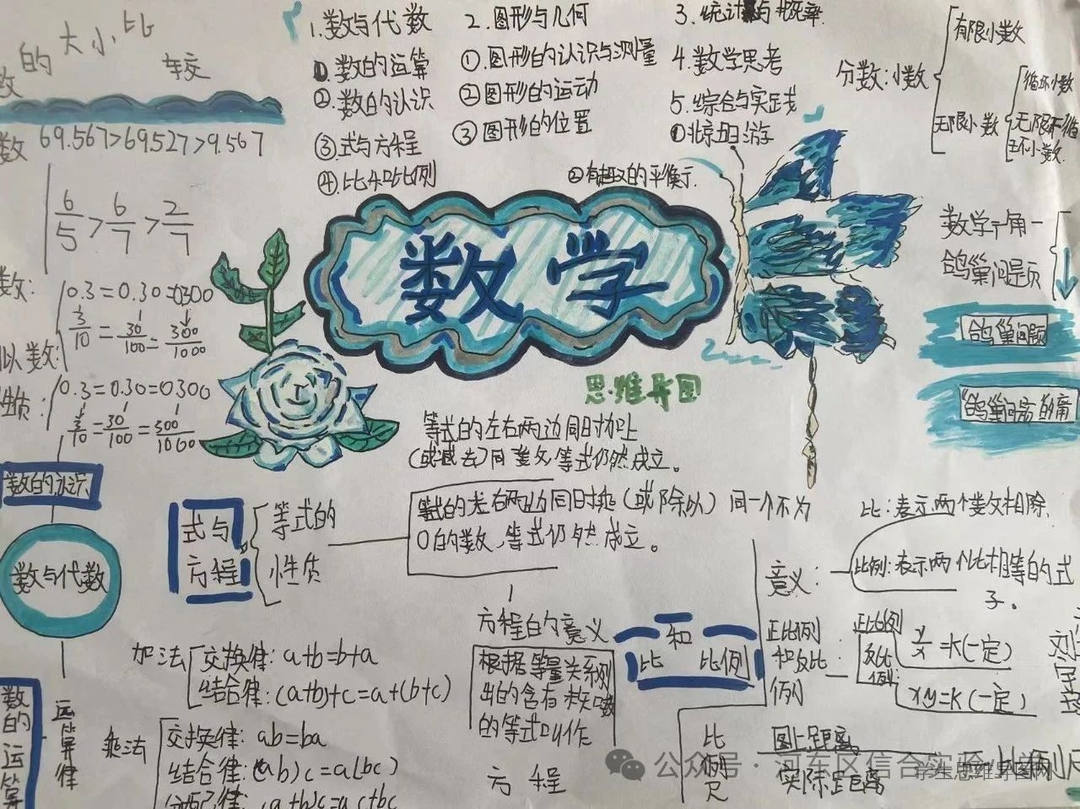 的大小比
较
数 69.567>69.527>9.567
6/5>6/7>2/7
0.3=0.30=0.300
3/10=30/100=300/1000
似数:
性质:
0.3=0.30=0.300
3/10=30/100=300/1000
数的认识
数与代数
数的运算
运算律
1.数与代数
①数的运算
②数的认识
③式与方程
④比和比例
2.图形与几何
①图形的认识与测量
②图形的运动
③图形的位置
3.统计与概率
4.数学思考
5.综合与实践
①北京五日游
②有趣的平衡
分数:小数
有限小数
无限小数
循环小数
无限不循
环小数
数学广角一
鸽巢问题
鸽巢问题
数学
思维导图
等式的左右两边同时加上
(或减去)同 数,等式仍然成立。
式与
方程
等式的
性质
等式的左右两边同时乘(或除以)同一个不为
0的数,等式仍然成立。
方程的意义
根据等量关系列
出的含有未知数
的等式叫作
方程
加法
交换律:a+b=b+a
结合律:(a+b)+c=a+(b+c)
乘法
交换律:ab=ba
结合律:(ab)c=a(bc)
分配律:(a+b)c=ac+bc
比和比例
意义:
比:表示两个数相除
比例:表示两个比相等的式
子。
正比例
和反比
例
正比例
y/x=k(一定)
反比
例:
xy=k(一定)
比
例
尺
图上距离
实际距离
公众号·河东区信合实验小学
学生思维导图网